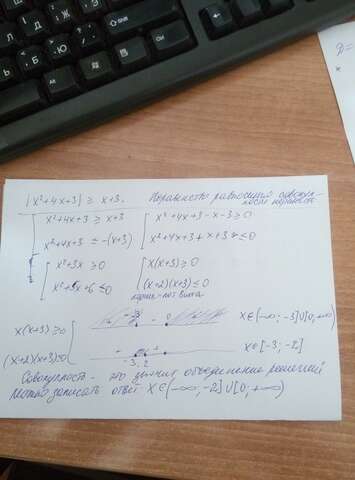 |x²+4x+3| ≥ x+3. Неравенство равносильно совокуп-
ности неравенств
[ x²+4x+3 ≥ x+3 [ x²+4x+3-x-3≥0
x²+4x+3 ≤ -(x+3) x²+4x+3+x+3≤0
[ x²+3x ≥ 0 [ x(x+3)≥0
x²+5x+6≤0 (x+2)(x+3)≤0
корни - по т Виета
x(x+3)≥0 -3 0 x∈(-∞;-3]∪[0;+∞)
(x+2)(x+3)≤0 + - + -3 -2 x∈[-3;-2]
Совокупность - это значит объединение решений
Можно записать ответ x∈(-∞;-2]∪[0;+∞)